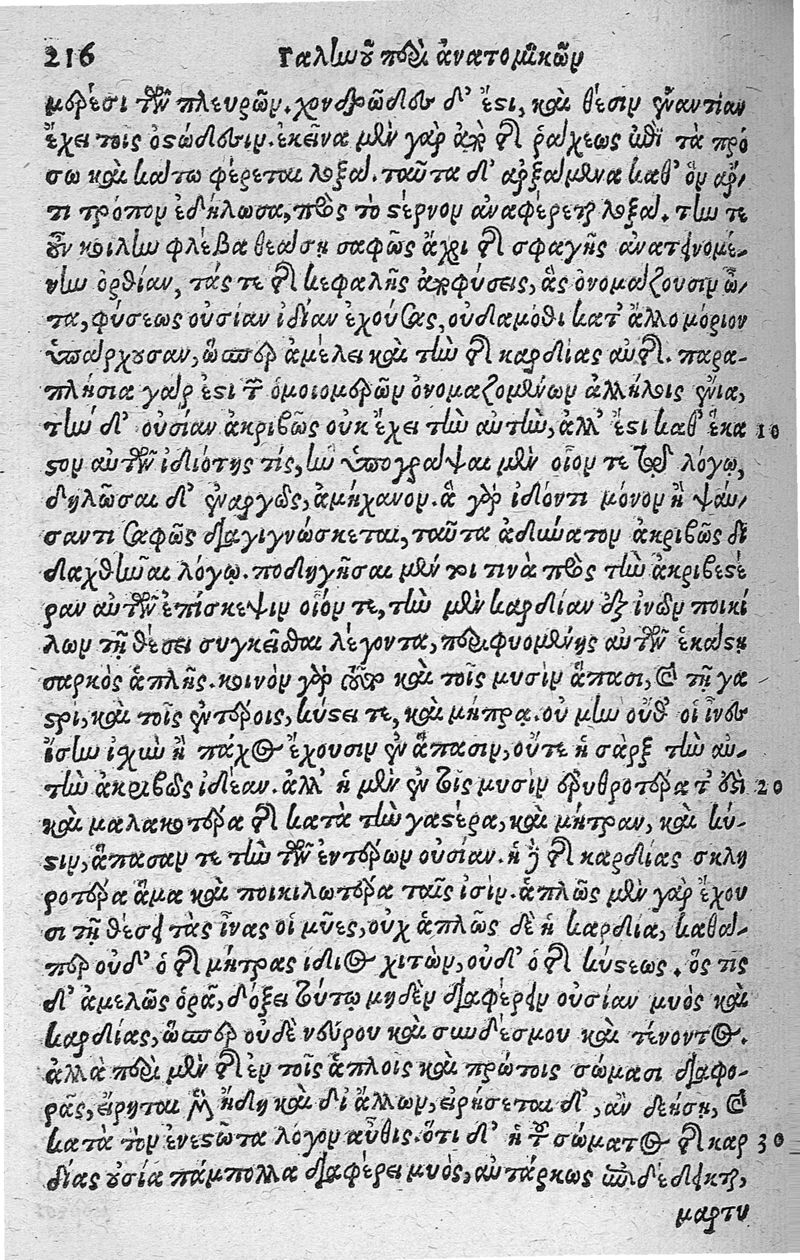 216 Γαληνοῦ περὶ ἀνατομικῶν
μέρεσι τῶν πλευρῶν. χονδρώδεις δ' ἔστι, καὶ θέσιν ἐναντίαν
ἔχει τοῖς ὀστώδεσιν. ἐκεῖνα μὲν γὰρ ἀπὸ τῆς ῥάχεως ἐπὶ τὰ πρό
σω καὶ κάτω φέρεται λοξά. ταῦτα δ' ἀρξάμενα καθ' ὃν ἄρ-
τι τρόπον ἐδήλωσα, πρὸς τὸ στέρνον ἀναφέρεται λοξά. τήν τε
οὖν κοίλην φλέβα θεάσῃ σαφῶς ἄχρι τῆς σφαγῆς ἀνατεινομέ-
νην ὀρθίαν, τάς τε τῆς κεφαλῆς ἀποφύσεις, ἃς ὀνομάζουσιν ὦ-
τα, φύσεως οὐσίαν ἰδίαν ἐχούσας, οὐδαμόθι κατ' ἄλλο μόριον
ὑπάρχουσαν, ὥσπερ ἀμέλει καὶ τὴν τῆς καρδίας αὐτῆς. παρα-
πλήσια γάρ ἐστι τῶν ὁμοιομερῶν ὀνομαζομένων ἀλλήλοις ἔνια,
τὴν δ' οὐσίαν ἀκριβῶς οὐκ ἔχει τὴν αὐτὴν, ἀλλ' ἔστι καθ' ἕκα 10
στον αὐτῶν ἰδιότης τίς, ἣν ὑπογράψαι μὲν οἷόν τε τῷ λόγῳ,
δηλῶσαι δ' ἐναργῶς, ἀμήχανον. ἃ γὰρ ἰδόντι μόνον ἢ ψαύ-
σαντι σαφῶς διαγιγνώσκεται, ταῦτα ἀδύνατον ἀκριβῶς δι
δαχθῆναι λόγῳ. ποδηγῆσαι μέν τοι τινὰ πρὸς τὴν ἀκριβεστέ
ραν αὐτῶν ἐπίσκεψιν οἷόν τε, τὴν μὲν καρδίαν ἐξ ἰνῶν ποικί
λων τῇ θέσει συγκεῖσθαι λέγοντα, περιφυομένης αὐτῶν ἑκάστῃ
σαρκὸς ἁπλῆς. κοινὸν γὰρ τοῦτο καὶ τοῖς μυσὶν ἅπασι, καὶ τῇ γα
στρὶ, καὶ τοῖς ἐντέροις, κύστει τε, καὶ μήτρᾳ. οὐ μὴν οὔθ' οἱ ἶνες
ἴσην ἰσχὺν ἢ πάχος ἔχουσιν ἐν ἅπασιν, οὔτε ἡ σὰρξ τὴν αὐ-
τὴν ἀκριβῶς ἰδέαν. ἀλλ' ἡ μὲν ἐν τοῖς μυσὶν ἐρυθροτέρα τ' ἐστὶ 20
καὶ μαλακωτέρα τῆς κατὰ τὴν γαστέρα, καὶ μήτραν, καὶ κύ-
στιν, ἅπασάν τε τὴν τῶν ἐντέρων οὐσίαν. ἡ δὲ τῆς καρδίας σκλη
ροτέρα ἅμα καὶ ποικιλωτέρα ταῖς ἰσίν. ἁπλῶς μὲν γὰρ ἔχου
σι τῇ θέσει τὰς ἶνας οἱ μῦες, οὐχ ἁπλῶς δὲ ἡ καρδία, καθά-
περ οὐδ' ὁ τῆς μήτρας ἴδιος χιτὼν, οὐδ' ὁ τῆς κύστεως. ὅς τις
δ' ἀμελῶς ὁρᾷ, δόξει τούτῳ μηδὲν διαφέρειν οὐσίαν μυὸς καὶ
καρδίας, ὥσπερ οὐδὲ νεύρου καὶ συνδέσμου καὶ τένοντος.
ἀλλὰ περὶ μὲν τῆς ἐν τοῖς ἁπλοῖς καὶ πρώτοις σώμασι διαφο-
ρᾶς, εἴρηται μὲν ἤδη καὶ δι' ἄλλων, εἰρήσεται δ', ἂν δεήσῃ, καὶ
κατὰ τὸν ἐνεστῶτα λόγον αὖθις. ὅτι δ' ἡ τοῦ σώματος τῆς καρ 30
δίας οὐσία πάμπολλα διαφέρει μυὸς, αὐτάρκως ἐπιδέδεικται,
μαρτυ